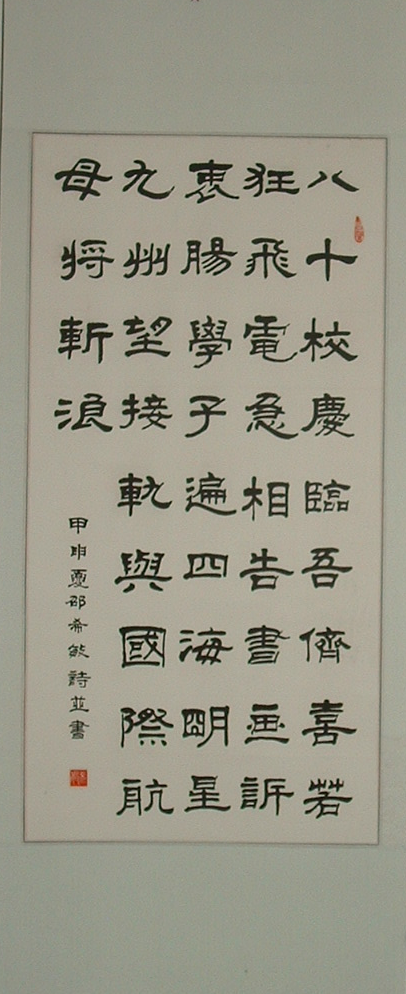 八十校慶臨吾儕喜若
狂飛電急相告書画訴
衷腸學子遍四海明星
九州望接軌與國際航
母将斬浪
甲申夏邵希敏詩並書